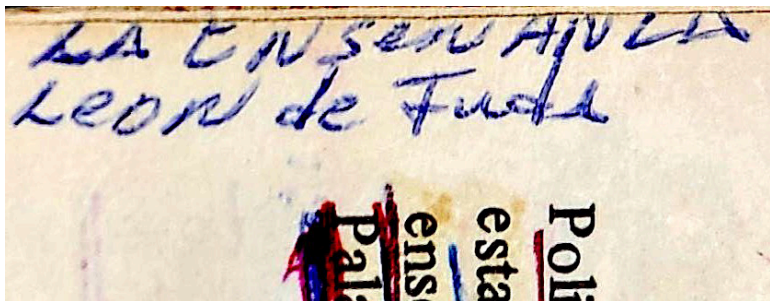 LA ENSENANZA
LEON de Juda
Poli
esta
ense
Pala